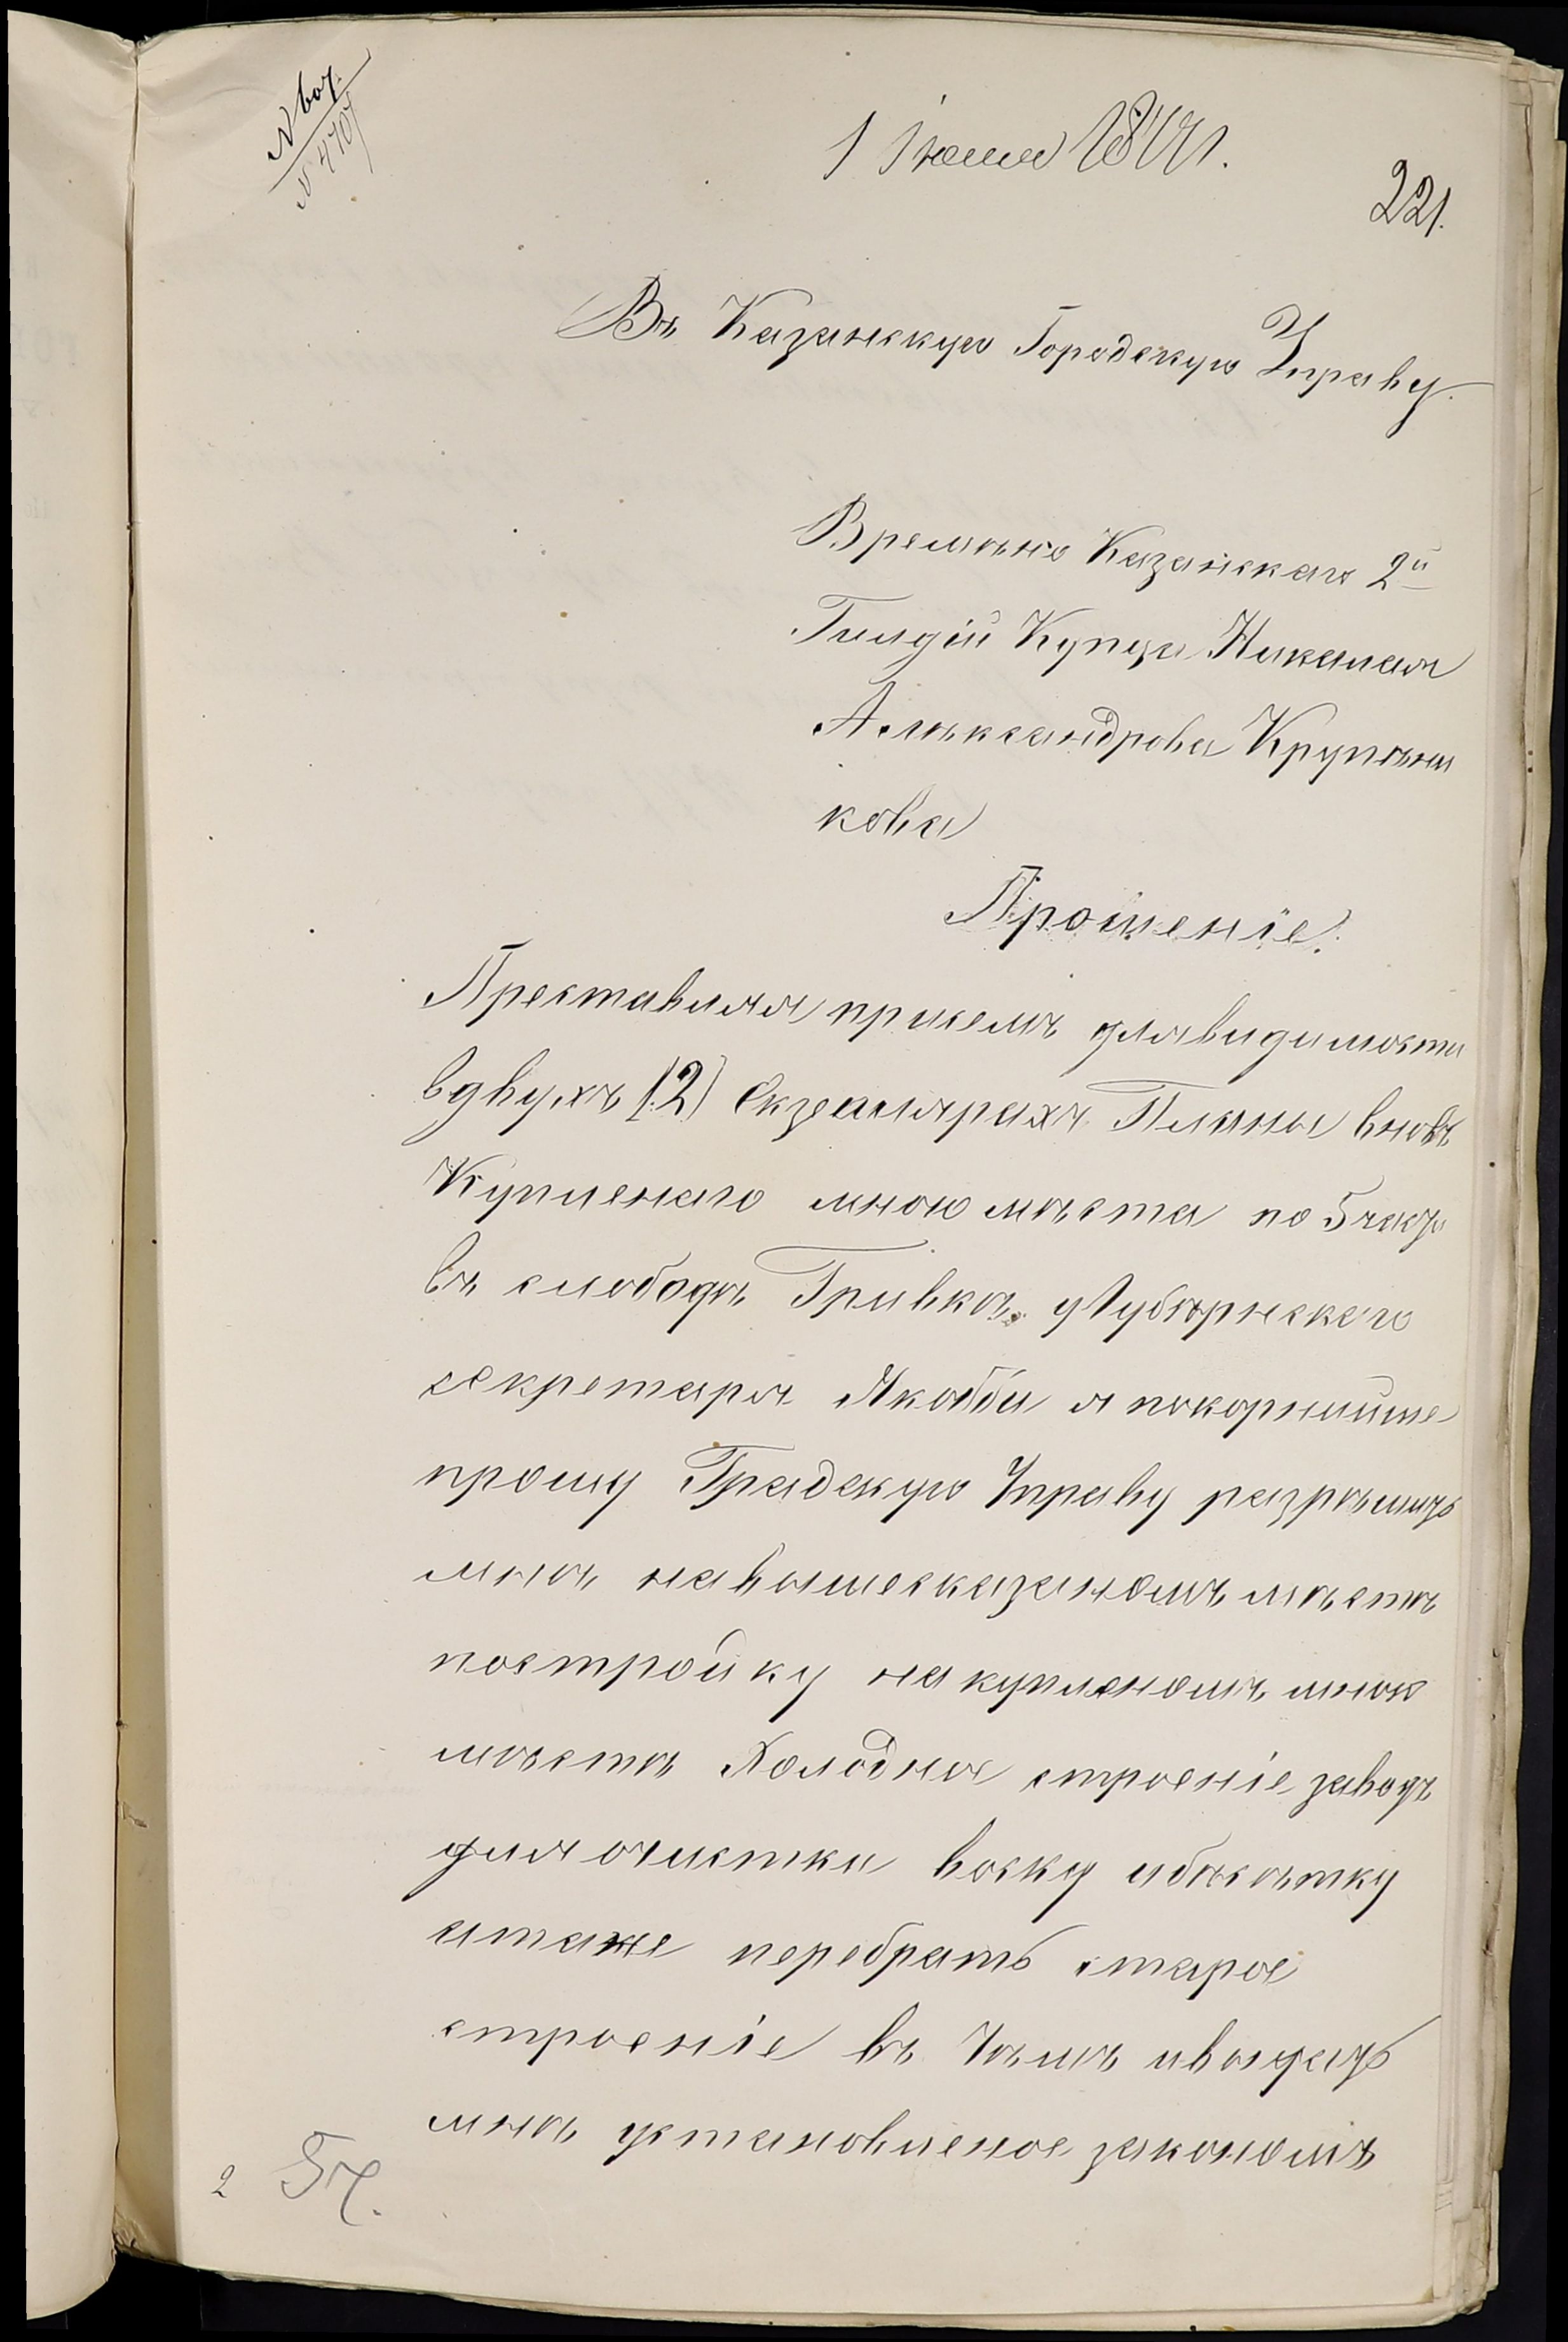 N 607.
N 4707
1 Іюня 1871.
221.
Въ Казанскую Городскую Управу.
Времѣнно Казанскаго 2й
Гилдіи Купца Николая
Алѣксандрова Крупѣни
кова
Прошеніе.
Преставляя присемъ длявидимости
вдвухъ (2) Екземлярахъ Планы вновь
Купленаго мною мѣста по 5 част
въ слободѣ Гривкѣ у Губѣрнскаго
секретаря Якобби я покорнийше
прошу Градскую Управу разрѣшить
мнѣ навышесказаномъ мѣстѣ
постройку на купленомъ мною
мѣстѣ Холодное строеніе заводъ
для очистки воску ибѣсѣтку
атакже перебрать старое
строеніе въ чѣмъ ивыдать
мнѣ установленое закономъ
2 5 Ч.